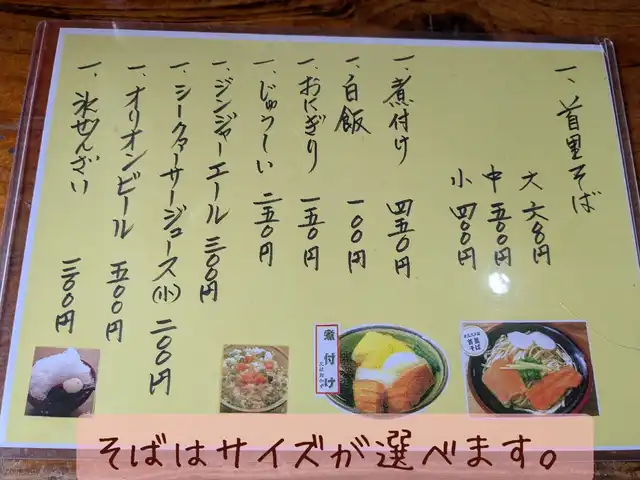 一、首里そば
大 六〇〇円
中 五〇〇円
小 四〇〇円
一、煮付け 四五〇円
一、白飯 一〇〇円
一、おにぎり 一五〇円
一、じゅうしい 二五〇円
一、ジンジャーエール 三〇〇円
一、シークァーサージュース(小) 二〇〇円
一、オリオンビール 五〇〇円
一、氷ぜんざい 三〇〇円
煮付け
首里そば
そばはサイズが選べます。